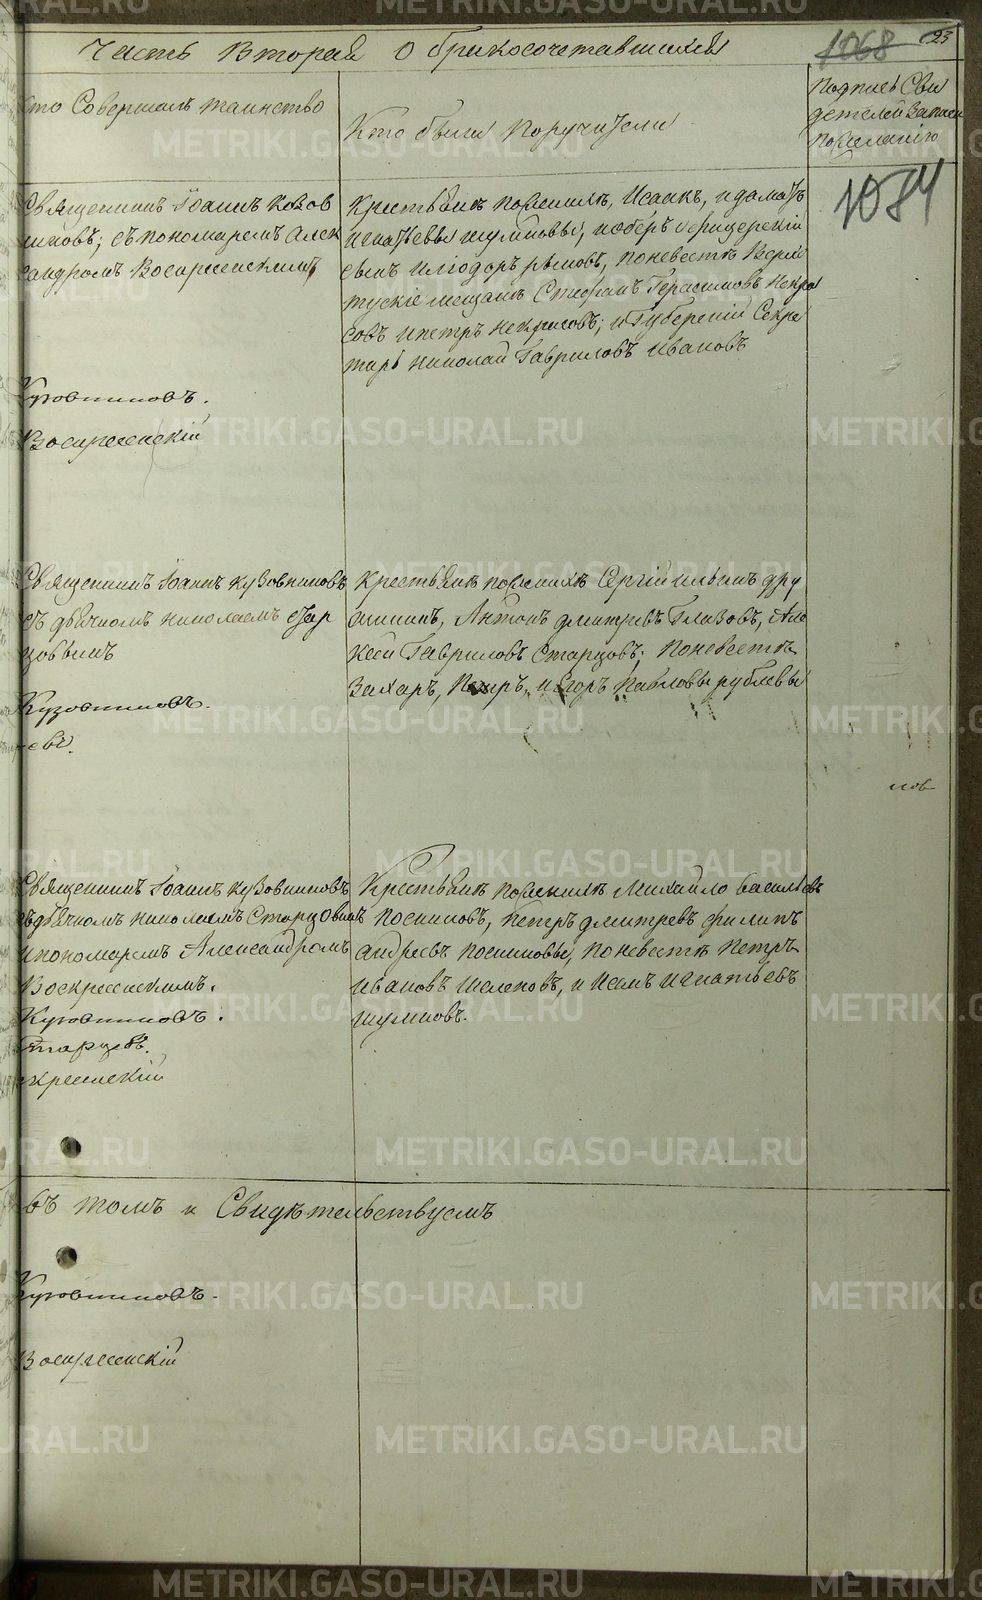 Часть Вторая О бракосочетавшихся
1068
25
Кто Совершалъ таинство
Кто были Поручители
Подпись Сви
детелей Записи
По желанію
1084
Священникъ Іоаннъ Кузов
никовъ; съ пономаремъ Алек
сандромъ Воскресенскимъ
Кузовниковъ.
Воскресенскій
Крестьяне по женихѣ, Исаакъ, и
Игнатьевы Шумковы, и оберъ офицерскій
сынъ Иліодоръ, по невестѣ
мещане Стефанъ Герасимовъ Некра
совъ и петръ Некрасовъ; и Губерскій Секре
тарь Николай Гавриловъ Ивановъ
Священникъ Іоаннъ Кузовниковъ
съ дьячкомъ Николаемъ Стар
цовымъ
Кузовниковъ.
евъ.
Крестьяне по женихѣ Сергій Ильинъ Дру
жининъ, Антонъ Дмитревъ Глазовъ, Але
ксей Гавриловъ Старцовъ; По невестѣ
Захаръ, Петръ, и Егоръ Павловы Рублевы
новъ
Священникъ Іоаннъ Кузовниковъ
съ дьячкомъ Николаемъ Старцовымъ
и пономаремъ Александромъ
Воскресенскимъ.
Кузовниковъ.
Старцевъ.
кресенскій
Крестьяне по женихѣ Михайло Васильевъ
Посниковъ, Петръ Дмитревъ Филипъ
Андреевъ Посниковы, По невестѣ Петръ
Ивановъ Шелеповъ, и Исакъ Игнатьевъ
Шумковъ.
въ томъ и Свидѣтельствуемъ
Кузовниковъ.
Воскресенскій
METRIKI.GASO-URAL.RU